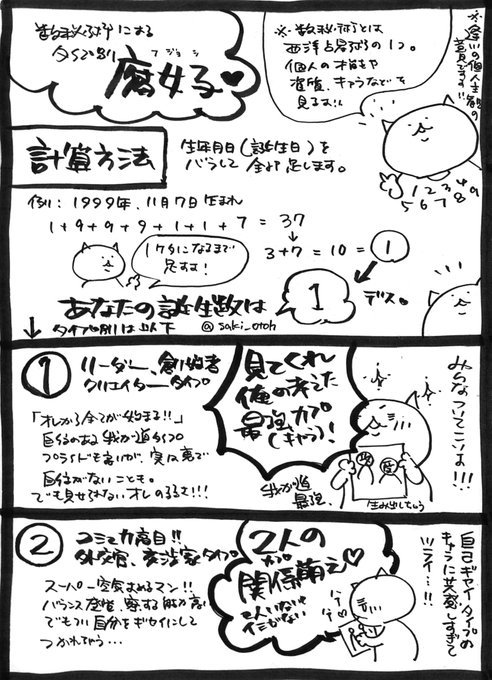 数秘術による
タイプ別
フジョシ
腐女子
※数秘術とは
西洋占星術の1つ。
個人の本質や
資質、キャラなどを
見るよ!!
計算方法
生年月日(誕生日)を
バラして全部足します。
1 2 3 4
5 6 7 8 9
例:1999年、11月7日生まれ
1+9+9+9+1+1+7=37
↓
3+7=10=①
1ケタになるまで
足すよ!
あなたの誕生数は
1
デス。
↓タイプ別は以下
@saki_otoh
①
リーダー、創始者
クリエイタータイプ
「オレから全てが始まる!!」
プライドも高いが、実は裏で
自信がないことも。
でも見せられないオレのよるさ!!!
見てくれ
俺の考えた
最強カプ
(キャラ)!
我が道
最強。
生み出しちゃう
②
コミュ力度目!!
外交官、交渉家タイプ
スーパー空気よめるマン!!
でもつい自分をギセイにして
つかれちゃう…
2人の
カプ
関係萌え
2人いないと
イミがない
自己ギセイタイプの
キャラに共感しすぎて
ツライ…!!